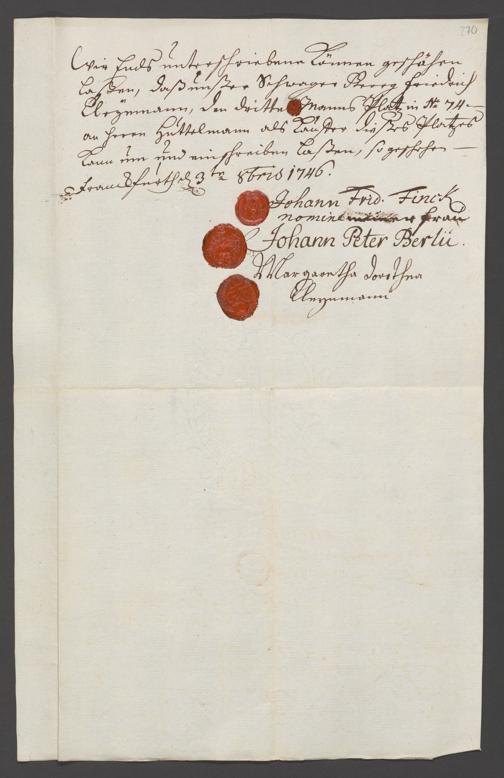 270
Wir Ends unterschriebene Können geschähen
laßen, daß unßer Schwager Herr Friedrich
Cleynmann, den dritten Manns Platz in No 74 —
an Herrn Hüttelmann als Käuffer dießes Platzes
kann um und einschreiben laßen, so geschehen —
Franckfurth d. 3ten 8bris 1746.
Johann Frid. Finck
nomine meiner frau
Johann Peter Berlii.
Margaretha Dorothea
Cleynmann